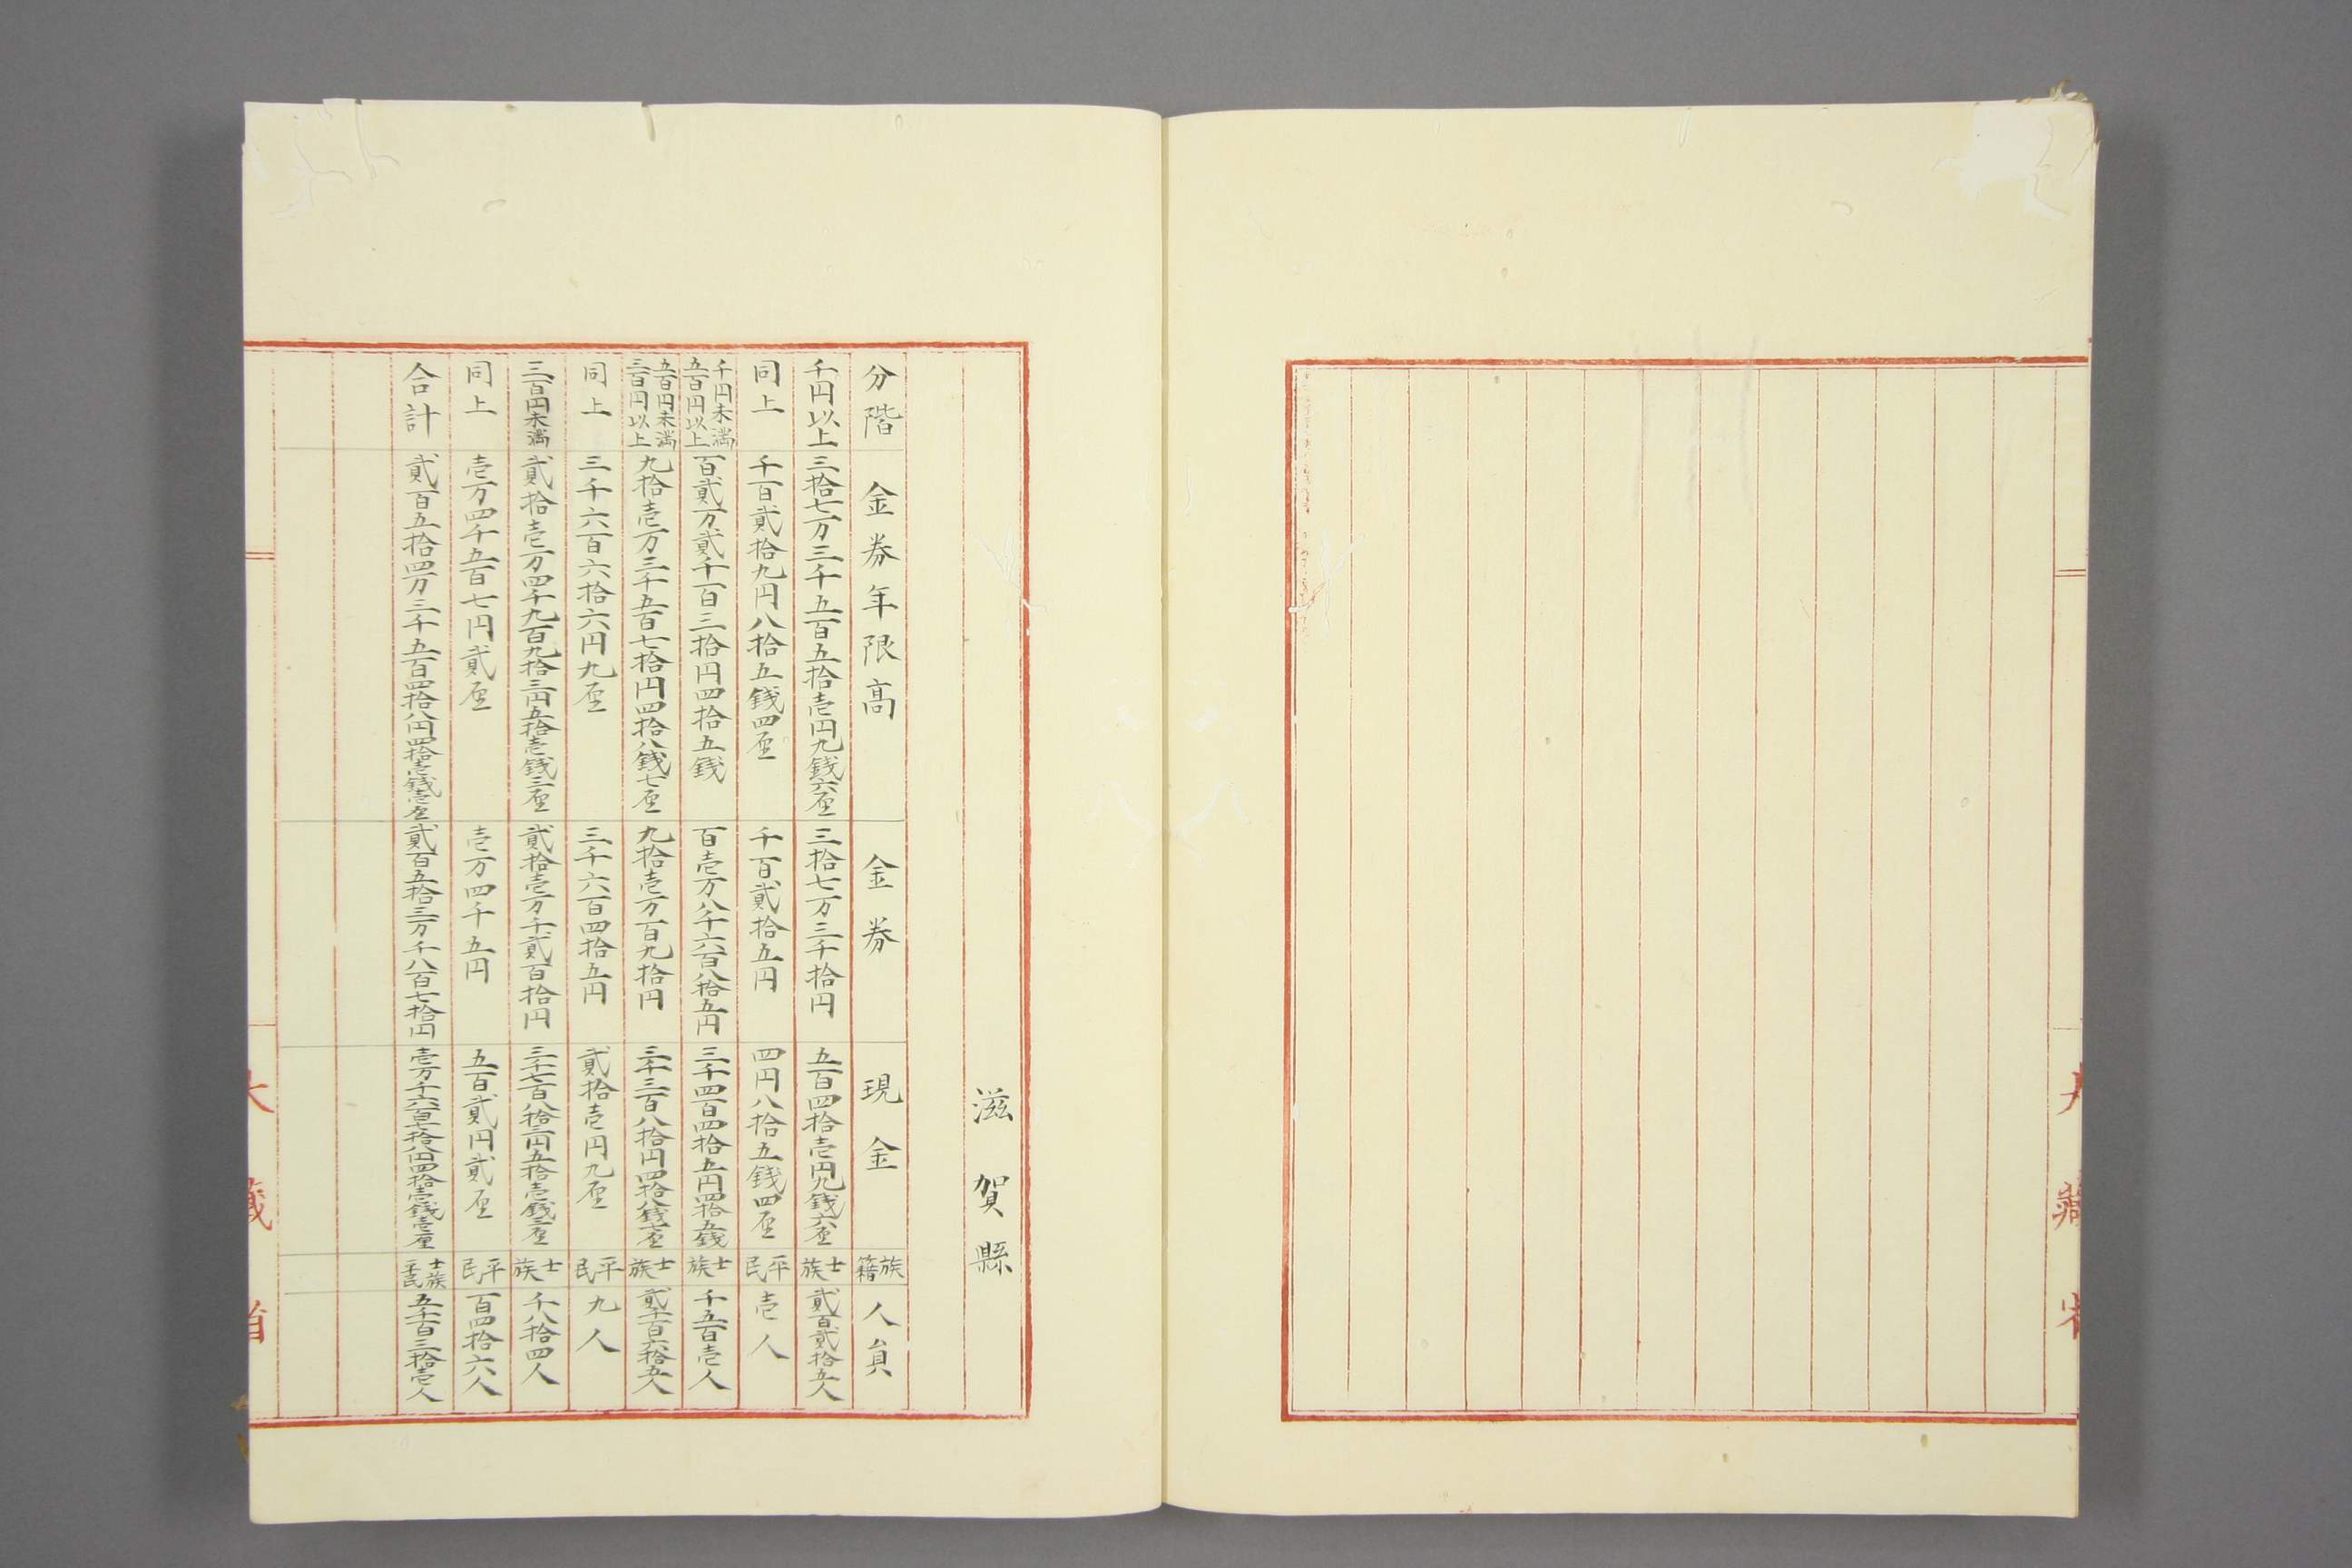 滋賀縣
分階 金券年限高 金券 現金 族籍 人員
千円以上 三拾七万三千五百五拾壱円九銭六厘 三拾七万三千拾円 五百四拾壱円九銭六厘 士族 貳百貳拾五人
同上 千百貳拾九円八拾五銭四厘 千百貳拾五円 四円八拾五銭四厘 平民 壱人
千円未満五百円以上 百貳万貳千百三拾円四拾五銭 百壱万八千六百八拾五円 三千四百四拾五円四拾五銭 士族 千五百壱人
五百円未満三百円以上 九拾壱万三千五百七拾円四拾八銭七厘 九拾壱万百九拾円 三千三百八拾円四拾八銭七厘 士族 貳千百六拾五人
同上 三千六百六拾六円九厘 三千六百四拾五円 貳拾壱円九厘 平民 九人
三百円未満 貳拾壱万四千九百九拾三円五拾壱銭三厘 貳拾壱万千貳百拾円 三千七百八拾三円五拾壱銭三厘 士族 千八拾四人
同上 壱万四千五百七円貳厘 壱万四千五円 五百貳円貳厘 平民 百四拾六人
合計 貳百五拾四万三千五百四拾八円四拾壱銭壱厘 貳百五拾三万千八百七拾円 壱万千六百七拾八円四拾壱銭壱厘 士族平民 五千百三拾壱人
大藏省